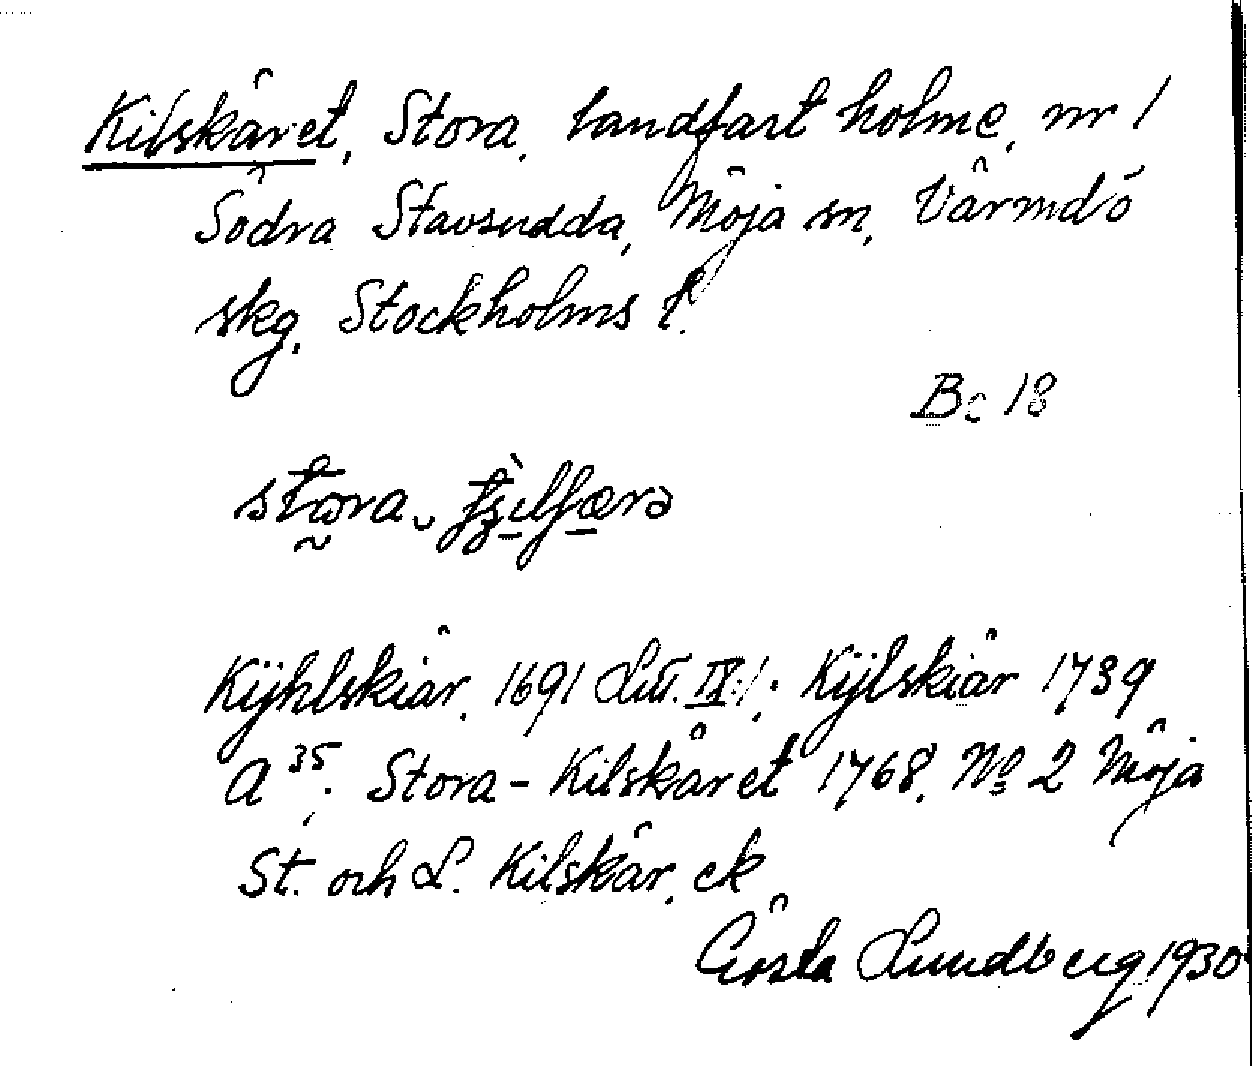 Kilskäret, Stora, landfast holme, nr 1
Södra Stavsudda, Möja sn, Värmdö
skg, Stockholms l.
Bc 18
stora
Kÿhlskiär, 1691 Litt. IX:1; Kÿlskiär 1739
A 35; Stora-Kilskäret 1768, No 2 Möja
St. och L. Kilskär, ek
Gösta Lundberg 1930